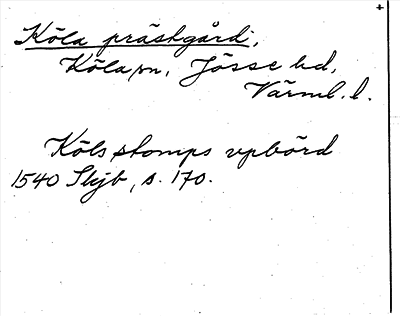 Köla prästgård,
Köla sn, Jösse hd,
Värml. l.
Köls stomps vpbörd
1540 Skjb, s. 170.